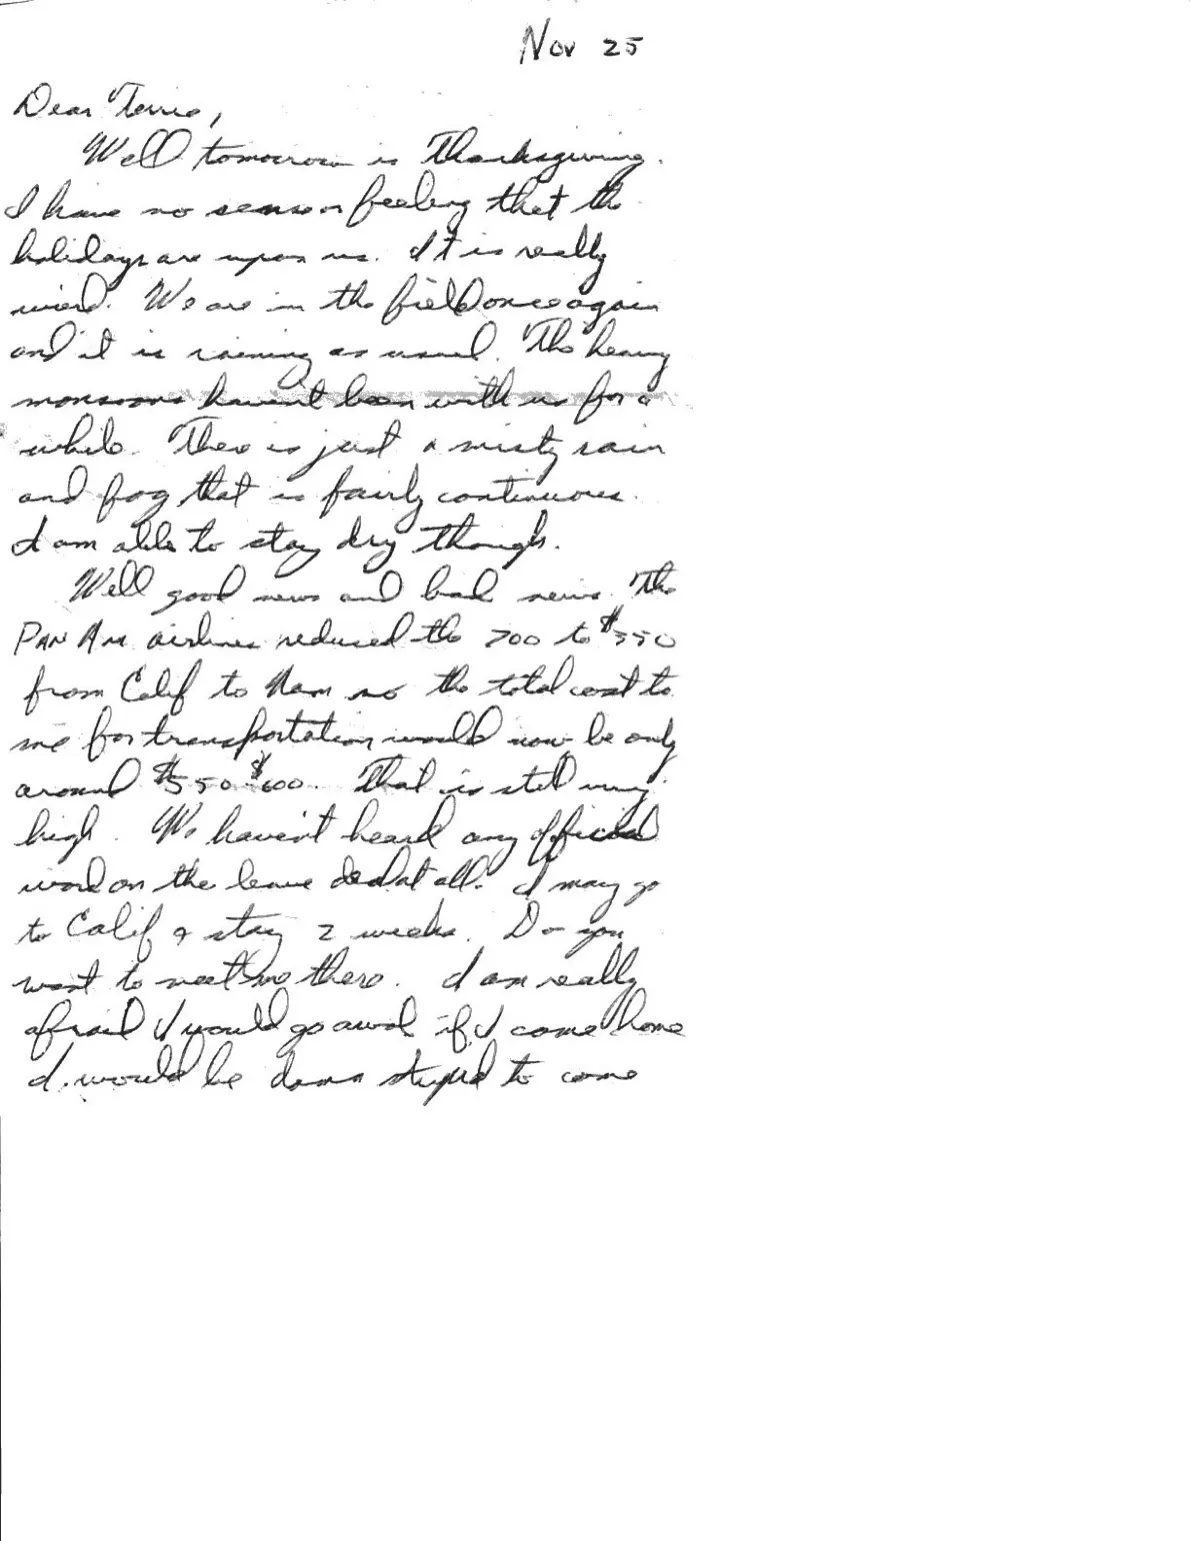 Nov 25
Dear Terrie,
Well tomorrow is Thanksgiving.
I have no sense or feeling that the
holidays are upon us. It is really
wierd. We are in the field once again
and it is raining as usual. The heavy
monsoons haven't been with us for a
while. There is just a misty rain
and fog that is fairly continuous.
I am able to stay dry though.
Well good news and bad news. The
PAN AM airlines reduced the 700 to $350
from Calif to Nam so the total cost to
me for transportation would now be only
around $550-$600. That is still very
high. We haven't heard any official
word on the leave deal at all. I may go
to Calif & stay 2 weeks. Do you
want to meet me there. I am really
afraid I would go awol if I come home
I would be damn stupid to come